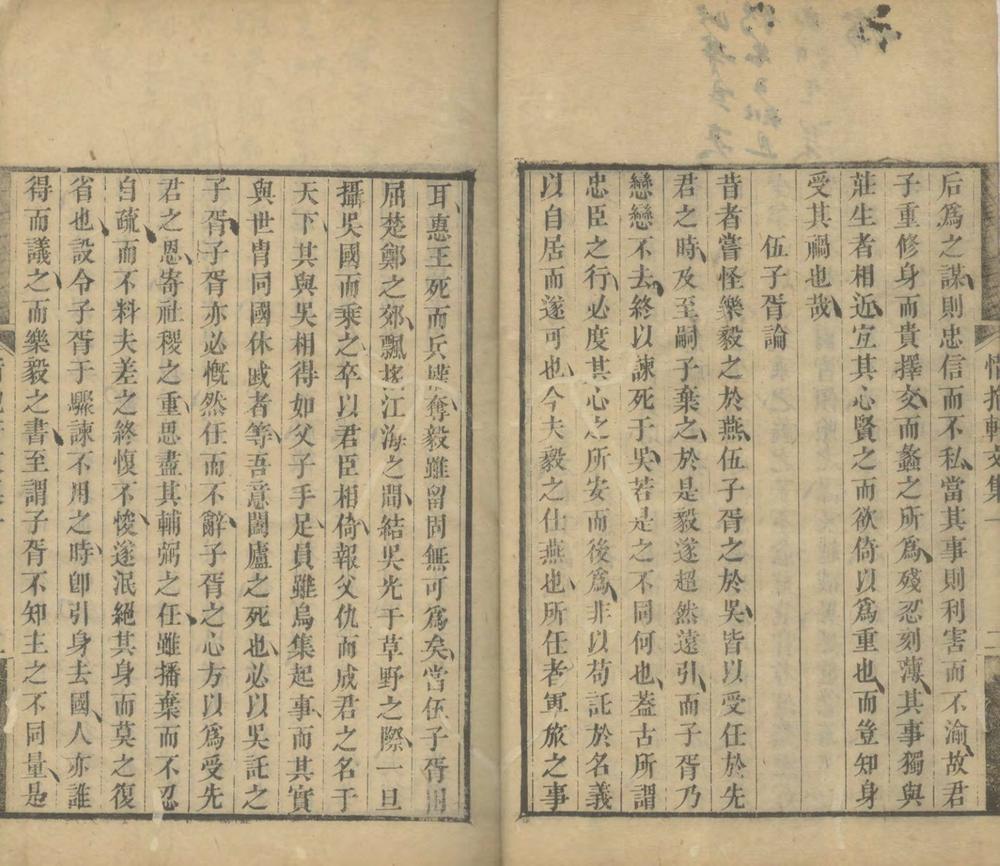 后爲之謀則忠信而不私當其事則利害而不渝故君
子重修身而貴擇交而蠡之所爲殘忍刻薄其事獨與
莊生者相近宜其心賢之而欲倚以爲重也而豈知身
受其禍也哉
伍子胥論
昔者嘗怪樂毅之於燕伍子胥之於吳皆以受任於先
君之時及至嗣子棄之於是毅遂超然遠引而子胥乃
戀戀不去終以諫死于吳若是之不同何也蓋古所謂
忠臣之行必度其心之所安而後爲非以苟託於名義
以自居而遂可也今夫毅之仕燕也所任者軍旅之事
耳惠王死而兵奪毅雖留固無可爲矣當伍子胥
屈楚鄭之郊飄搖江海之間結吳光于草野之際一旦
攝吳國而乘之卒以君臣相倚報父仇而成君之名于
天下其與吳相得如父子手足員雖烏集起事而其實
與世胄同國休戚者等吾意闔廬之死也必以吳託之
子胥子胥亦必慨然任而不辭子胥之心方以爲受先
君之恩寄社稷之重思盡其輔弼之任雖播棄而不忍
自疏而不料夫差之終愎不悛遂泯絕其身而莫之復
省也設令子胥于驟諫不用之時卽引身去國人亦誰
得而議之而樂毅之書至謂子胥不知主之不同量是
惜抱軒文集一
二